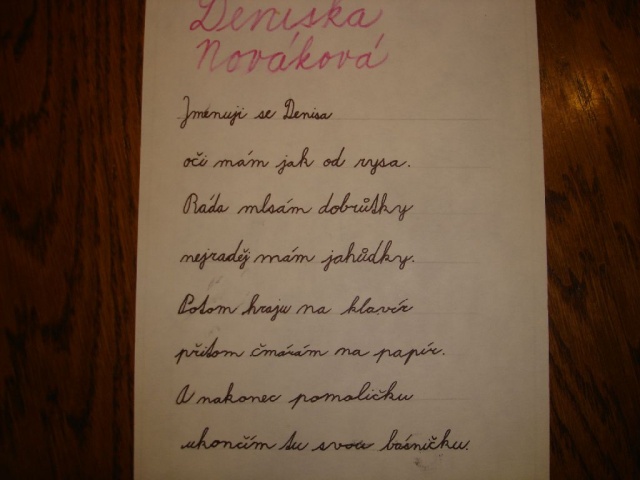 Deniska
Nováková
Jmenuji se Denisa
oči mám jak od rysa.
Ráda mlsám dobrůtky
nejraději mám jahůdky.
Potom hraju na klavír
přitom čmárám na papír.
A nakonec pomaličku
ukončím tu svou básničku.